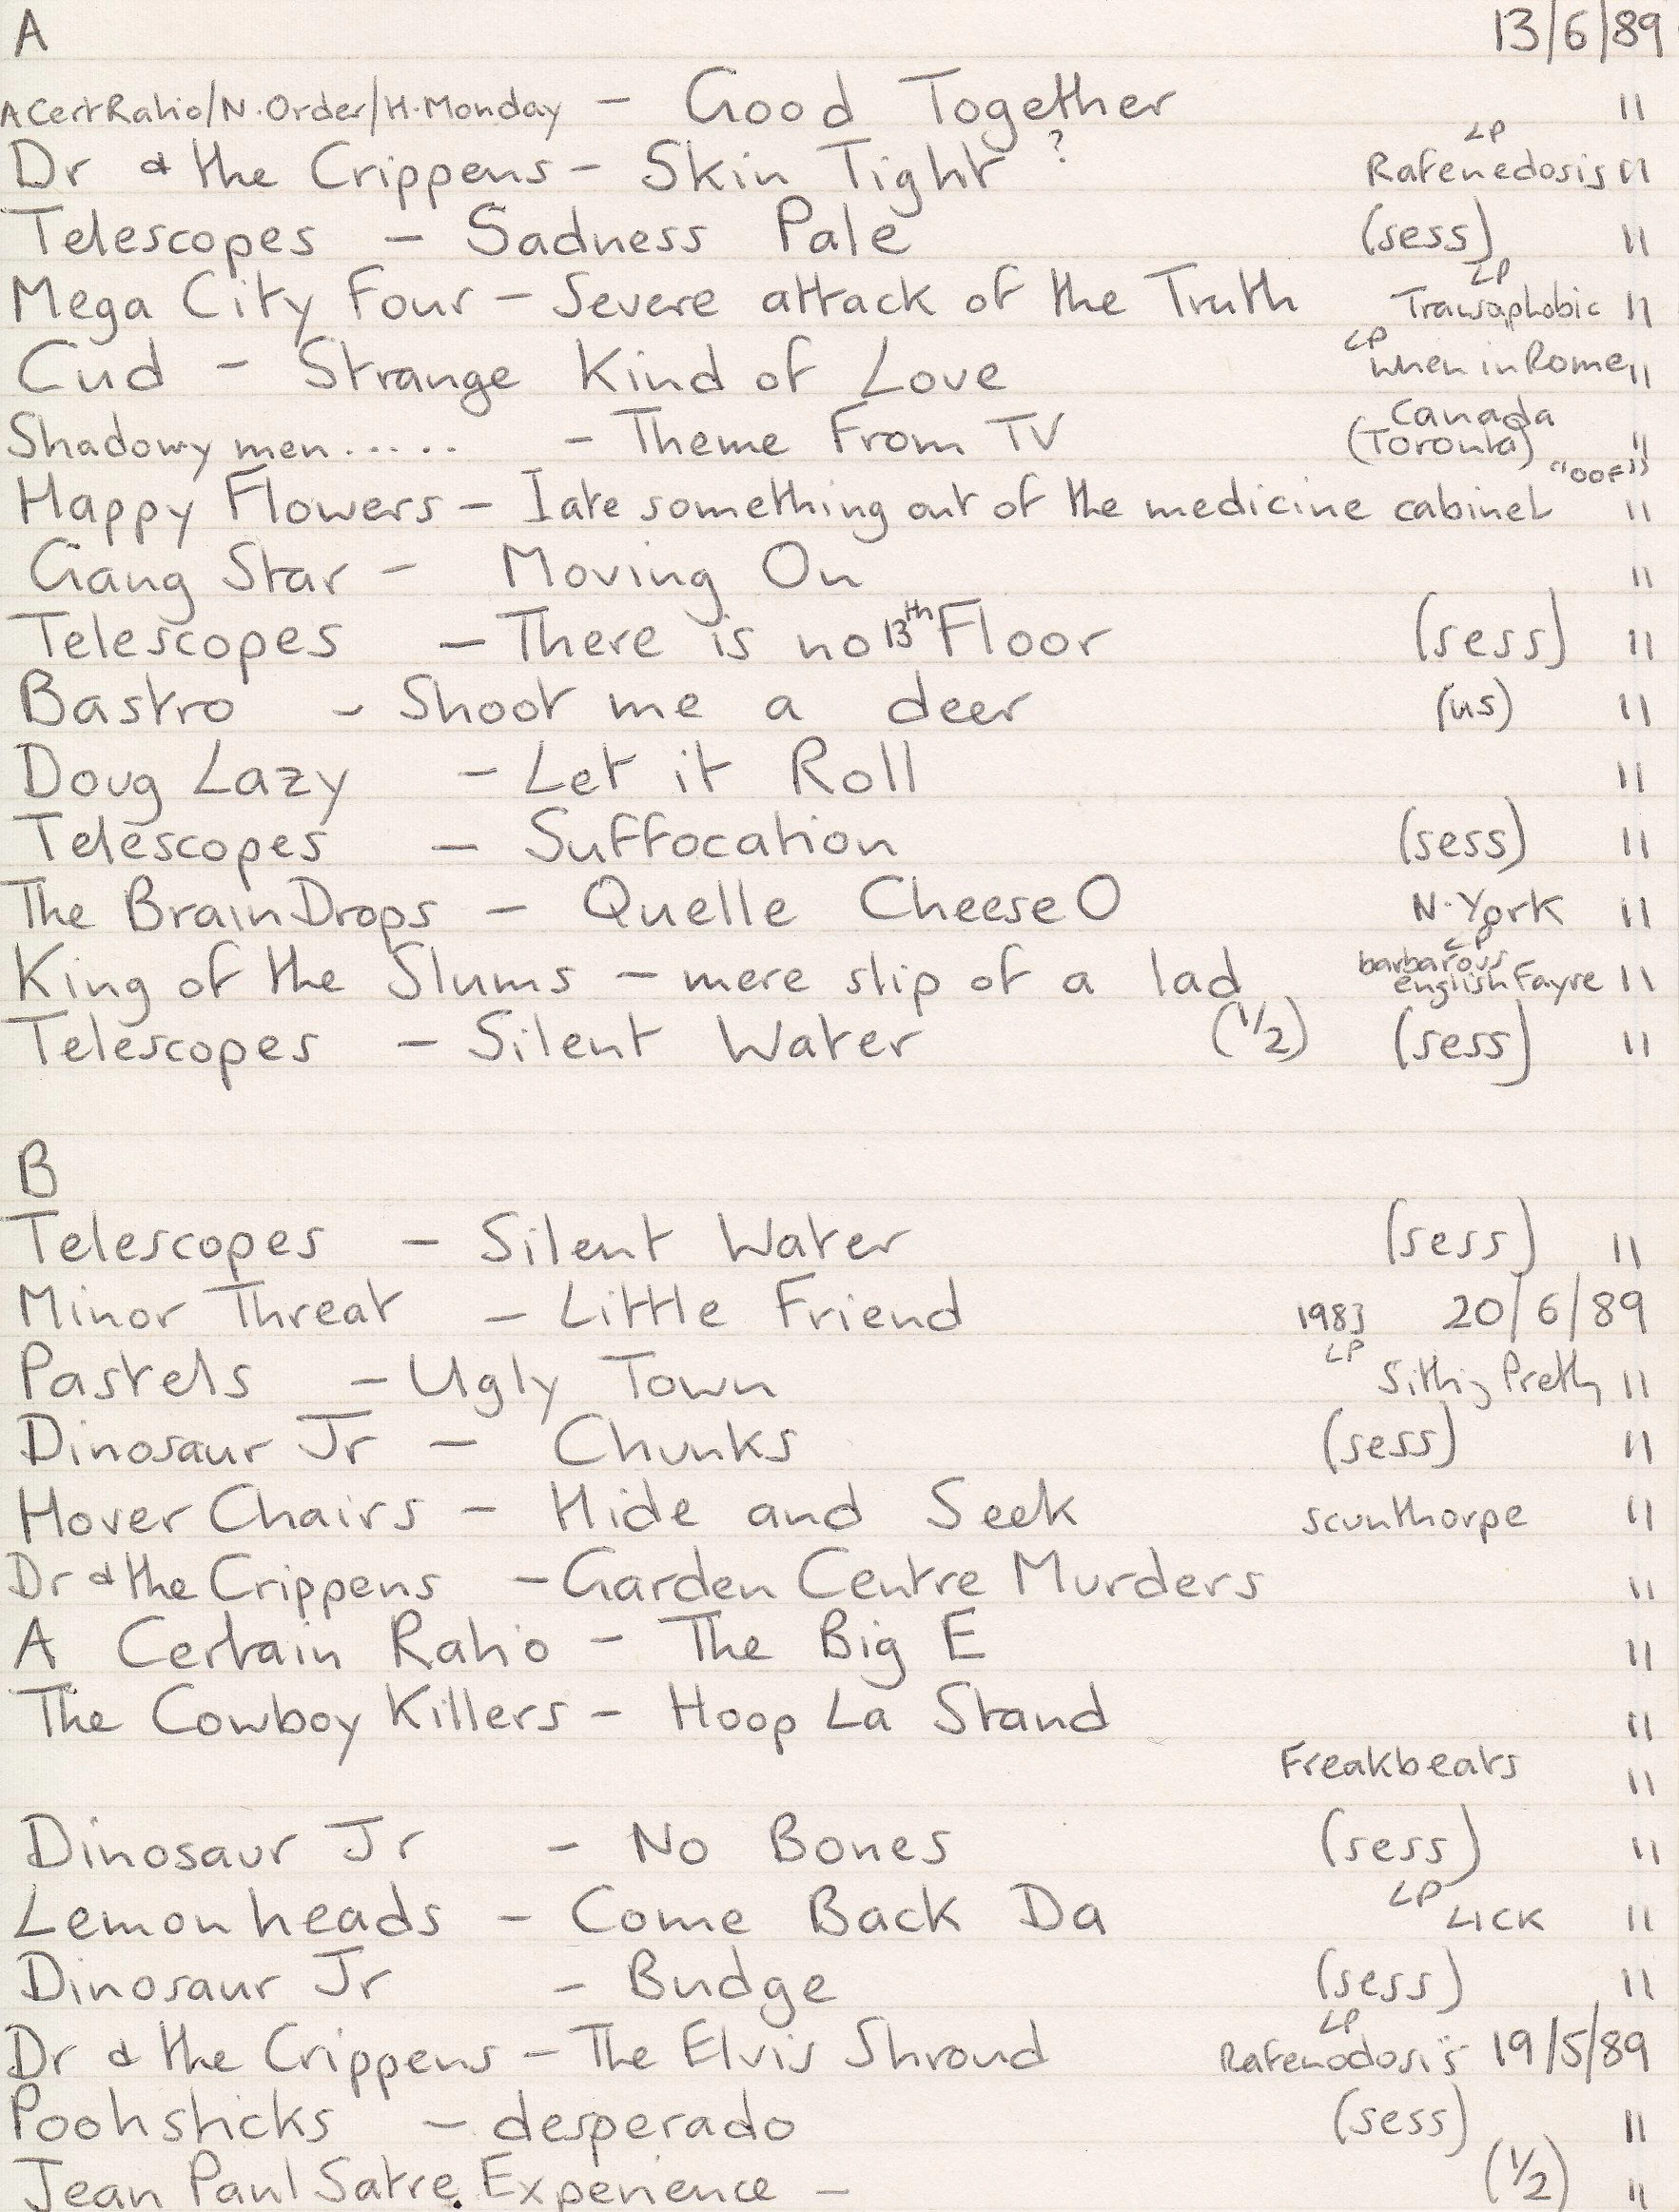 A 13/6/89
A Cert Ratio/N.Order/H.Monday - Good Together "
Dr & the Crippens - Skin Tight ? LP Rafenedosis "
Telescopes - Sadness Pale (sess) "
Mega City Four - Severe attack of the Truth LP Tranzophobic "
Cud - Strange Kind of Love LP When in Rome "
Shadowy men ..... - Theme From TV Canada (Toronto) "
Happy Flowers - I ate something out of the medicine cabinet "OOF" "
Gang Star - Moving On "
Telescopes - There is no 13th Floor (sess) "
Bastro - Shoot me a deer (US) "
Doug Lazy - Let it Roll "
Telescopes - Suffocation (sess) "
The BrainDrops - Quelle Cheese O N.York "
King of the Slums - mere slip of a lad LP barbarous english Fayre "
Telescopes - Silent Water (1/2) (sess) "
B
Telescopes - Silent Water (sess) "
Minor Threat - Little Friend 1983 20/6/89
Pastels - Ugly Town LP Sitting Pretty "
Dinosaur Jr - Chunks (sess) "
Hover Chairs - Hide and Seek Scunthorpe "
Dr & the Crippens - Garden Centre Murders "
A Certain Ratio - The Big E "
The Cowboy Killers - Hoop La Stand "
Freakbeats "
Dinosaur Jr - No Bones (sess) "
Lemonheads - Come Back Da LP LICK "
Dinosaur Jr - Budge (sess) "
Dr & the Crippens - The Elvis Shroud LP Rafenodosis 19/5/89
Poohsticks - desperado (sess) "
Jean Paul Satre Experience - (1/2) "